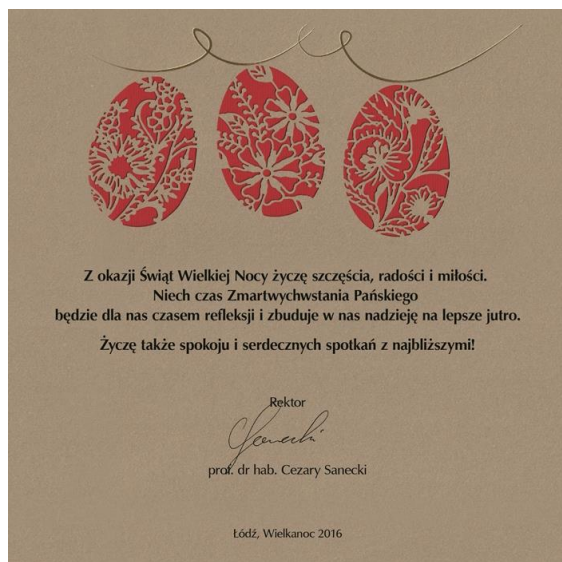 Z okazji Świąt Wielkiej Nocy życzę szczęścia, radości i miłości.
Niech czas Zmartwychwstania Pańskiego
będzie dla nas czasem refleksji i zbuduje w nas nadzieję na lepsze jutro.
Życzę także spokoju i serdecznych spotkań z najbliższymi!
Rektor
Sanecki
prof. dr hab. Cezary Sanecki
Łódź, Wielkanoc 2016